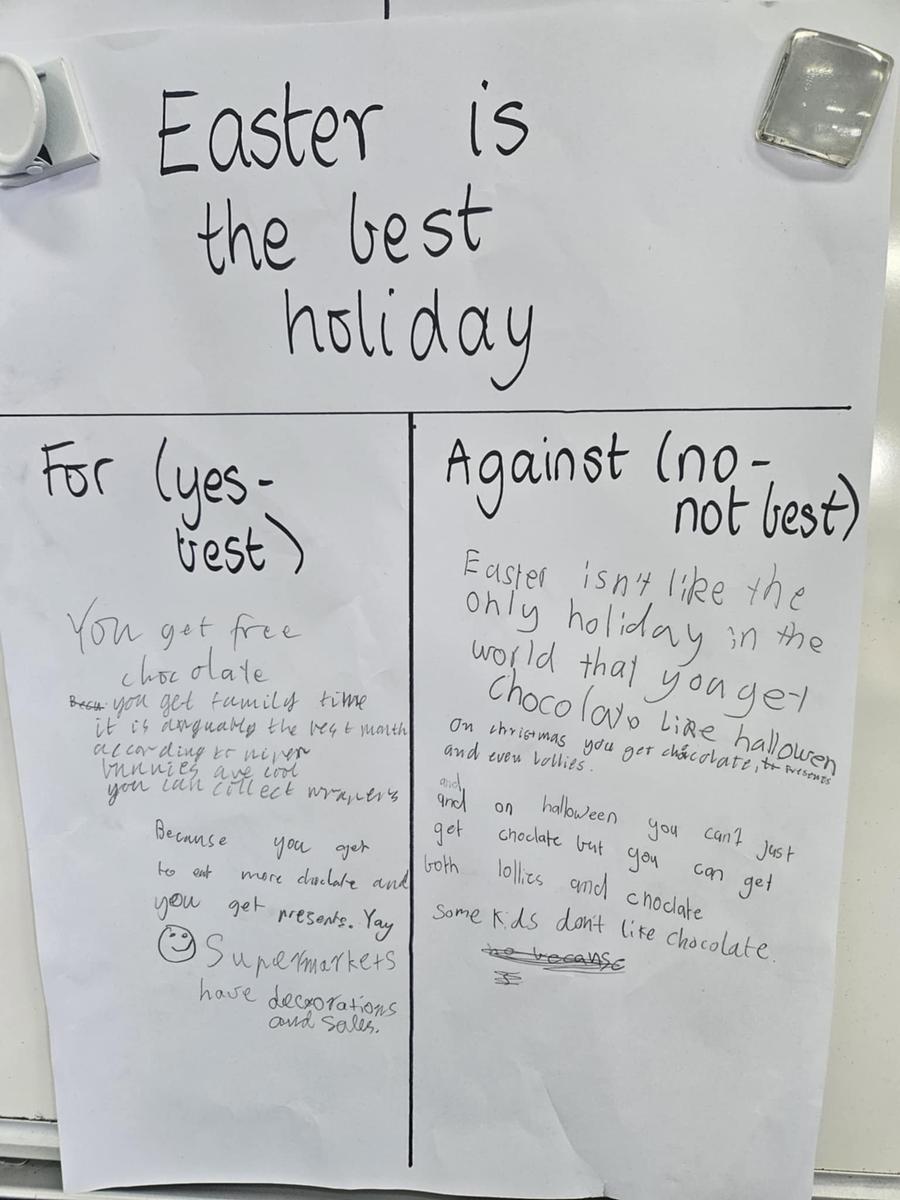 Easter is
the best
holiday
For (yes -
best)
You get free
chocolate
you get family time
it is arguably the best month
according to
bunnies are cool
you can collect wrapers
Because you get
to eat more choclate and
you get presents. Yay
Supermarkets
have decorations
and sales.
Against (no -
not best)
Easter isn't like the
only holiday in the
world that you get
Chocolate like hallowen
On christmas you get chocolate, presents
and even lollies.
and
and on halloween you can't just
get choclate but you can get
both lollies and choclate
Some kids don't like chocolate.
no because